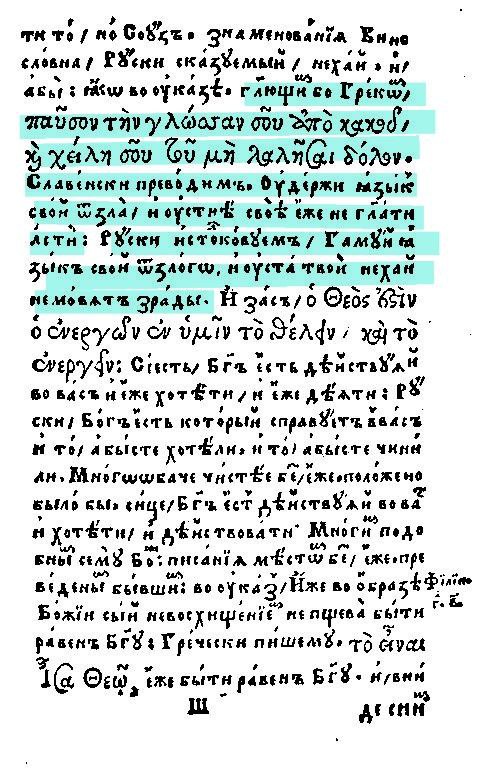 ти то́ / но́ Сою́зъ. Знаменова́нїѧ Вино
словна / Ру́ски ска́зуемый / неха́й. и҆/
абы̀: ꙗ҆́кѡ во ѹ҆ка́зѣ. гл҃ющи бо Гре́кѡⷨ /
παῦσον τὴν γλῶσσαν σοῦ ἀπὸ κακοῦ /
κὴ χείλη σοῦ τοῦ μὴ λαλῆσαι δόλον.
Славе́нски прево́димъ. Ѹ҆де́ржи ꙗ҆зы́к
сво́й ѿ зла̀ / и ѹ҆стнѣ̀ своѣ̀ е҆́же не гл҃ати
лстѝ: Ру́ски и҆стоко́вуемъ / Гаму́й ꙗ
зы́къ сво́й ѿ зло́гѡ, и ѹ҆ста̀ твоѝ неха́й
не мо́вѧтъ зра́ды. И҆ за́съ / ὁ Θεὸς ἐστὶν
ὁ ἐνεργῶν ἐν ὑμῖν τὸ θέλειν / κὴ τὸ
ἐνεργεῖν: Сїе́сть / Бг҃ъ е҆́сть дѣ́йствуѧй
во ва́съ и҆ е҆́же хотѣ́ти / и҆ е҆́же дѣ́ѧти: Ру́
ски / Бо́гъ е҆́сть кото́рый справу́етъ в ва́съ
и҆ то́ / а҆бы́сте хотѣ́ли. и҆ то́ / а҆бы́сте чини́
ли. Мно́гѡ ѡ҆ба́че чистѣ́е бѐ / е҆́же. поло́жено
бы́ло бы. си́це / Бг҃ъ е҆́ст дѣ́йствуѧй во ва́с
и҆ хотѣ́ти / и҆ дѣ́йствовати. Мно́гиⷨ подо́
бныⷨ сему̀ Бⷤ҇їѧ писа́нїѧ мѣ́стѡⷨ бѐ / е҆́же. пре
веде́ныⷨ бы́вшиⷨ: во ѹ҆ка́з / И҆́же во ѡ҆́бразѣ Фїлїп.
Бо́жїи сы́й не восхище́нїеⷨ не пщева̀ бы́ти г҃. в҃.
ра́венъ Бг҃у: Гре́чески пи́шему. τὸ εἶναι
Ἶσα Θεῷ, е҆́же бы́ти ра́венъ Бг҃у. и҆ / вни
Ш де сни́ⷨ